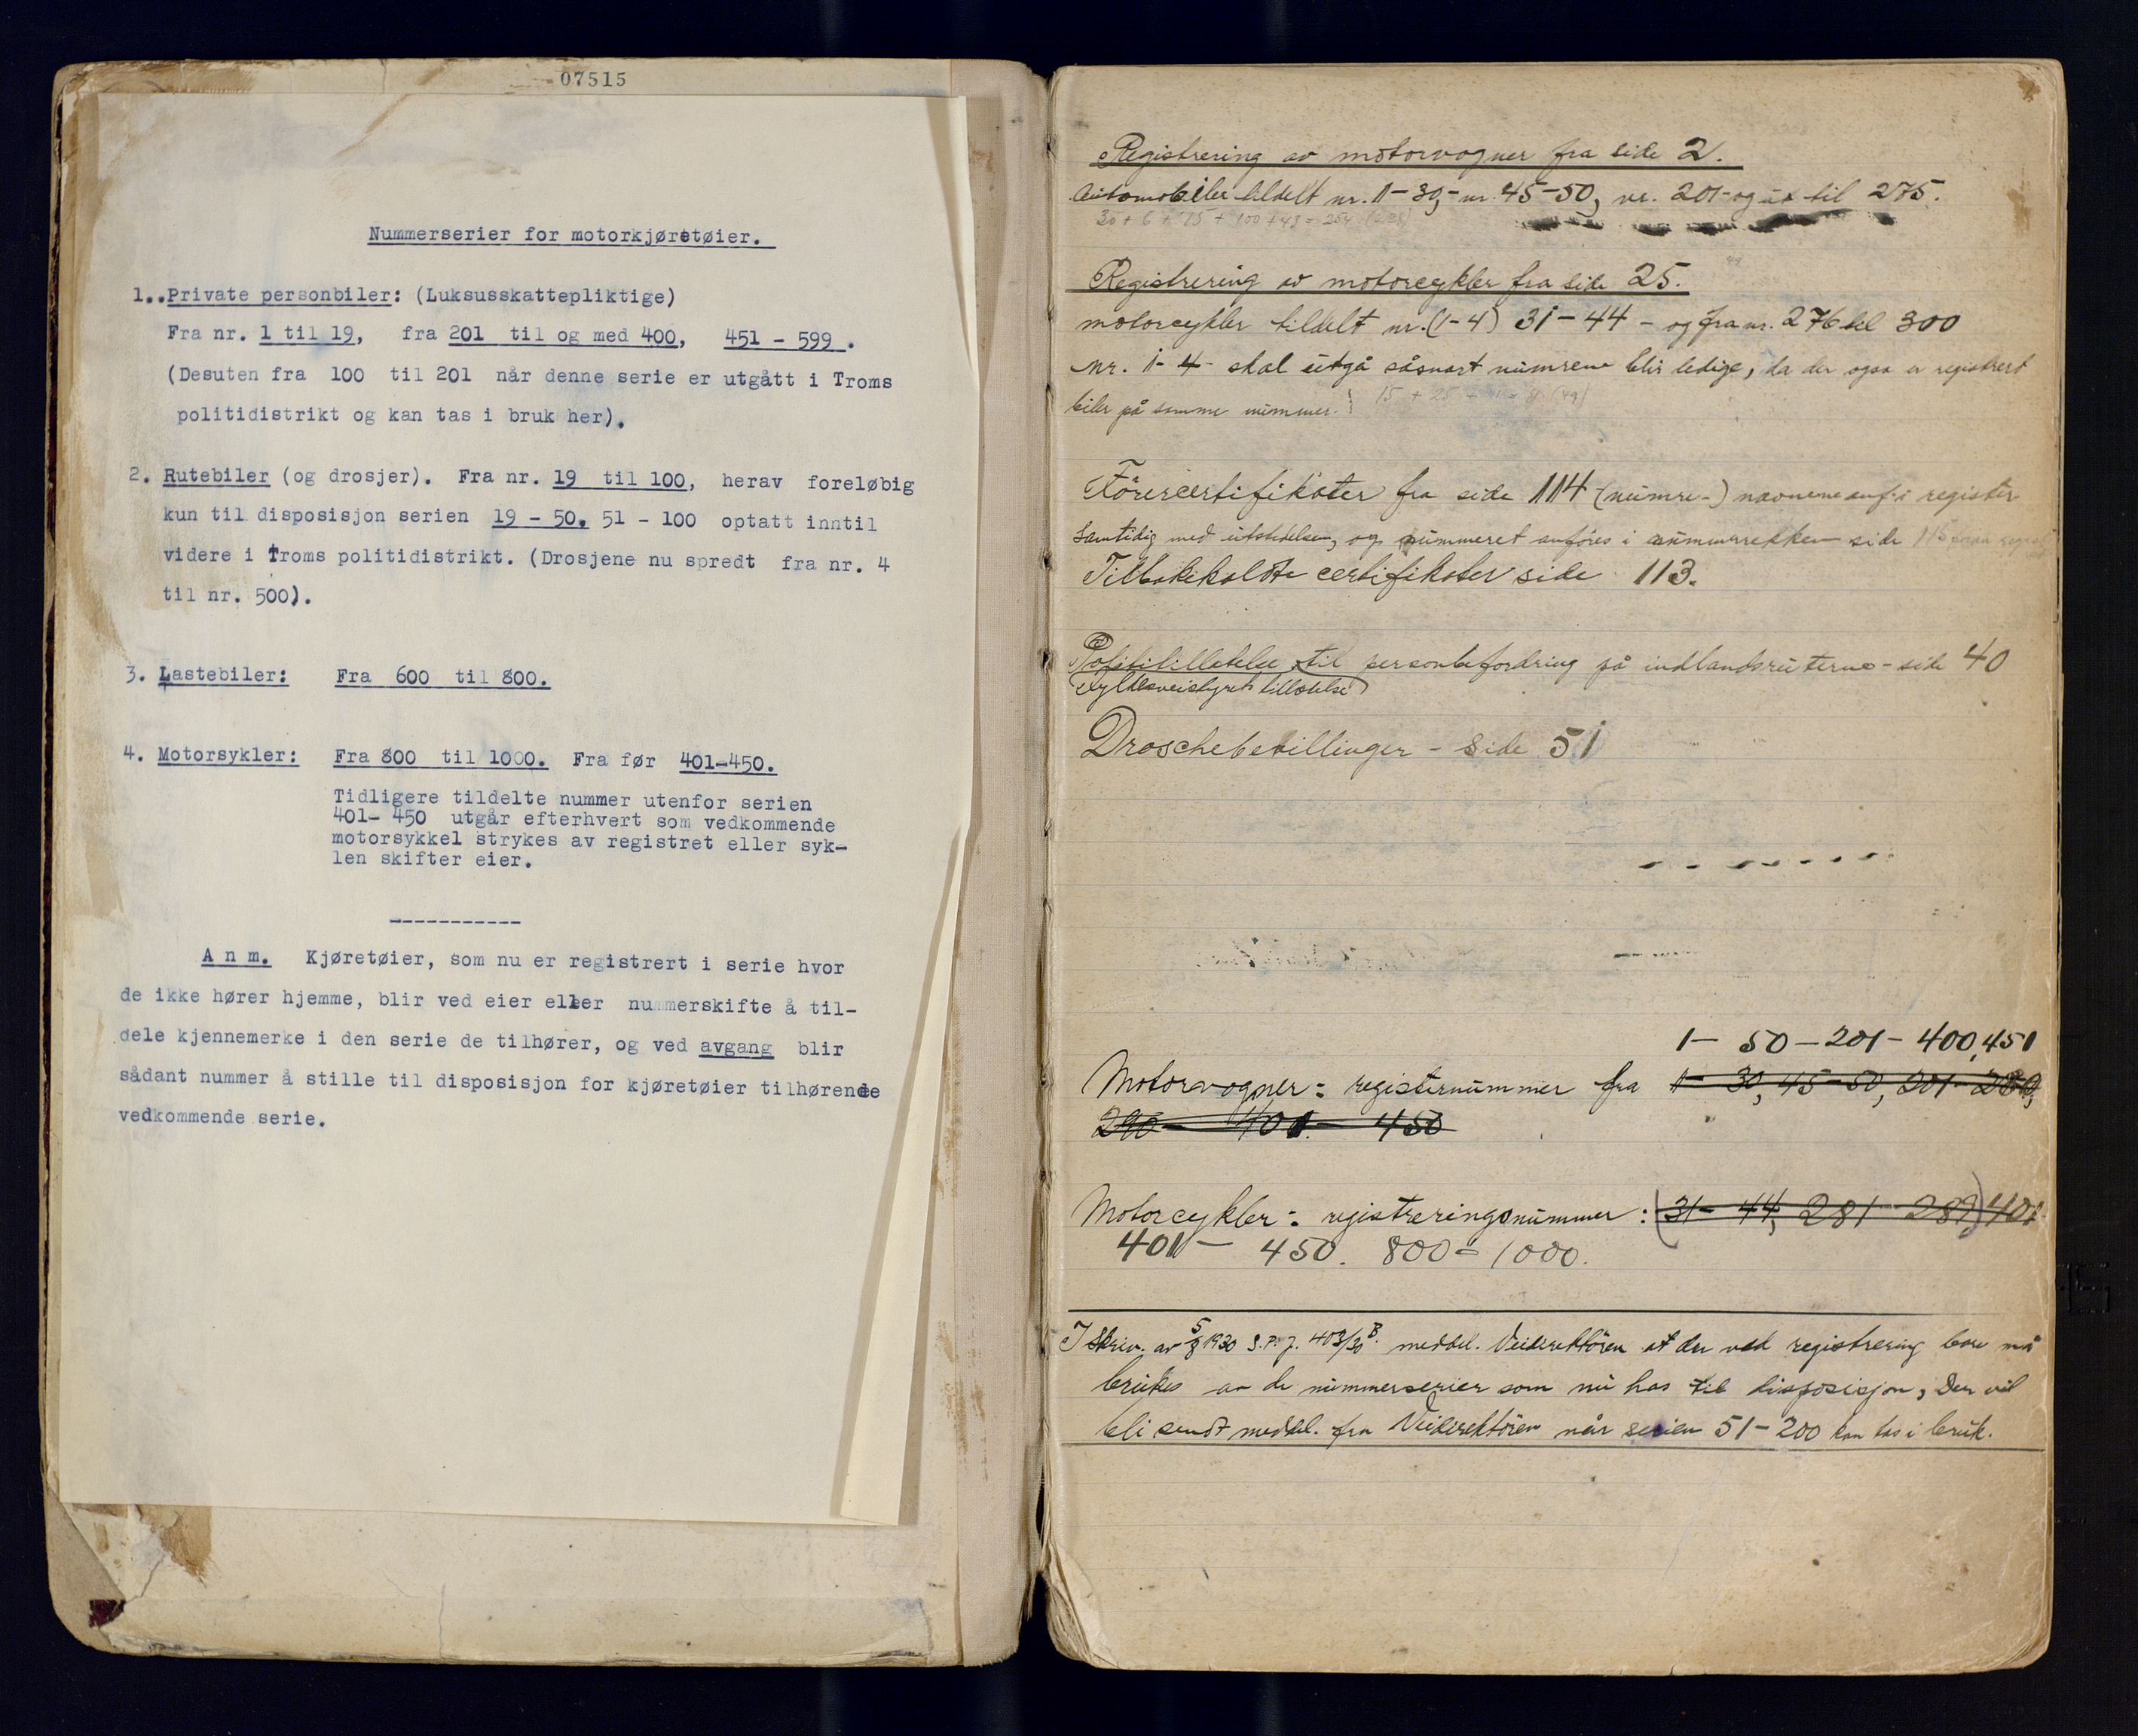 07515
Nummerserier for motorkjøretøier.
1..Private personbiler: (Luksusskattepliktige)
Fra nr. 1 til 19, fra 201 til og med 400, 451 - 599 .
(Desuten fra 100 til 201 når denne serie er utgått i Troms
politidistrikt og kan tas i bruk her).
2. Rutebiler (og drosjer). Fra nr. 19 til 100, herav foreløbig
kun til disposisjon serien 19 - 50. 51 - 100 optatt inntil
videre i Troms politidistrikt. (Drosjene nu spredt fra nr. 4
til nr. 500).
3. Lastebiler: Fra 600 til 800.
4. Motorsykler: Fra 800 til 1000. Fra før 401-450.
Tidligere tildelte nummer utenfor serien
401- 450 utgår efterhvert som vedkommende
motorsykkel strykes av registret eller syk-
len skifter eier.
-----------
A n m. Kjøretøier, som nu er registrert i serie hvor
de ikke hører hjemme, blir ved eier eller nummerskifte å til-
dele kjennemerke i den serie de tilhører, og ved avgang blir
sådant nummer å stille til disposisjon for kjøretøier tilhørende
vedkommende serie.
Registrering av motorvogner fra side 2.
Automobiler tildelt nr. 1-30,- nr. 45-50, nr. 201- og til 275.
30 + 6 + 75 + 100 + 43 = 254
Registrering av motorcykler fra side 25.
motorcykler tildelt nr. (1-4) 31-44 - og fra nr. 276 til 300
Nr. 1-4 skal utgå såsnart numrene blir ledige, da der også er registrert
biler på samme nummer. 15 + 25 + (49)
Förercertifikater fra side 114 (numre-) navnene anf. i register
samtidig med utstedelsen, og nummeret anföres i nummerrekken side 115
Tilbakekaldte certifikater side 113.
Polititillatelse til personbefordring på indlandsruterne - side 40
(Fylkesveistyrets tillatelse)
Droschebevillinger - side 51
1- 50 - 201 - 400, 451
Motorvogner: registernummer fra 1- 30, 45-50, 201-280,
290 - 401 - 450
Motorcykler: registreringsnummer: (31- 44, 281 - 289) 401
401 - 450. 800 - 1000.
I skriv. av 5/8 1930 S.P. J. 403/30 B. meddel. Veidirektören at der ved registrering bare må
brukes av de nummerserier som nu has til disposisjon, Der vil
bli sendt meddel. fra Veidirektören når serien 51-200 kan tas i bruk.